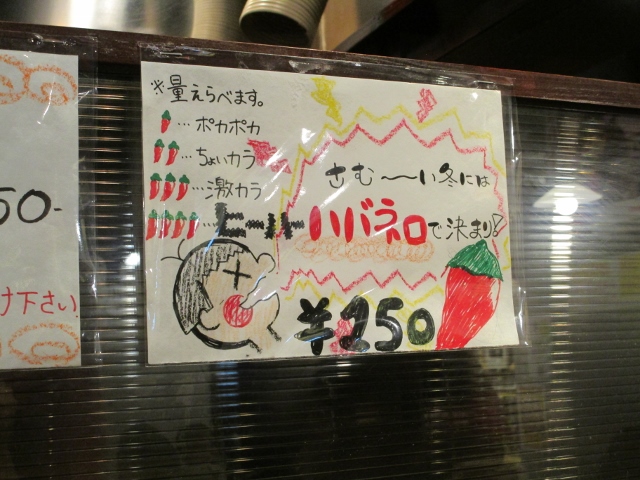 50-
け下さい
※量えらべます。
…ポカポカ
…ちょいカラ
…激カラ
…
さむ〜い冬には
ヒートハバネロで決まり!
¥250